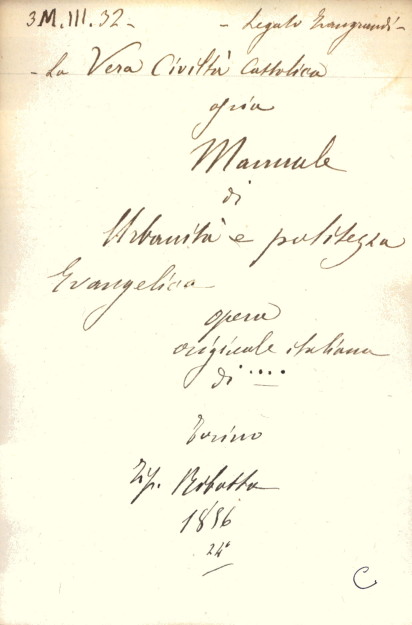 3M.III.32- - Legato Zangrandi-
- La Vera Civiltà Cattolica
ossia
Manuale
di
Urbanità e politezza
Evangelica
opera
originale italiana
di ....
Torino
Tip. Ribotta
1856
24°
C